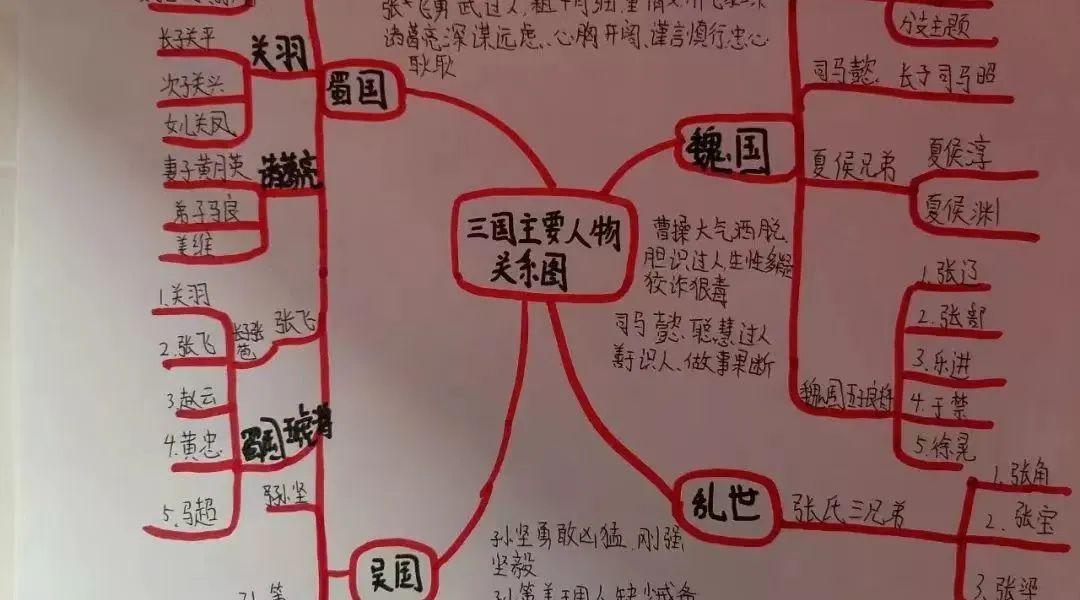 长子关平
次子关兴
女儿关凤
关羽
蜀国
妻子黄月英
弟子马良
姜维
诸葛亮
长子张苞
张飞
1.关羽
2.张飞
3.赵云
4.黄忠
5.马超
蜀国五虎将
孙坚
吴国
诸葛亮深谋远虑、心胸开阔、谨言慎行忠心
耿耿
三国主要人物
关系图
魏国
分支主题
司马懿
长子司马昭
夏侯兄弟
夏侯淳
夏侯渊
曹操大气洒脱、
胆识过人生性多疑
狡诈狠毒
司马懿、聪慧过人
善于识人、做事果断
魏国五子良将
1.张辽
2.张部
3.乐进
4.于禁
5.徐晃
乱世
张氏三兄弟
1.张角
2.张宝
3.张梁
孙坚勇敢凶猛、刚强
坚毅